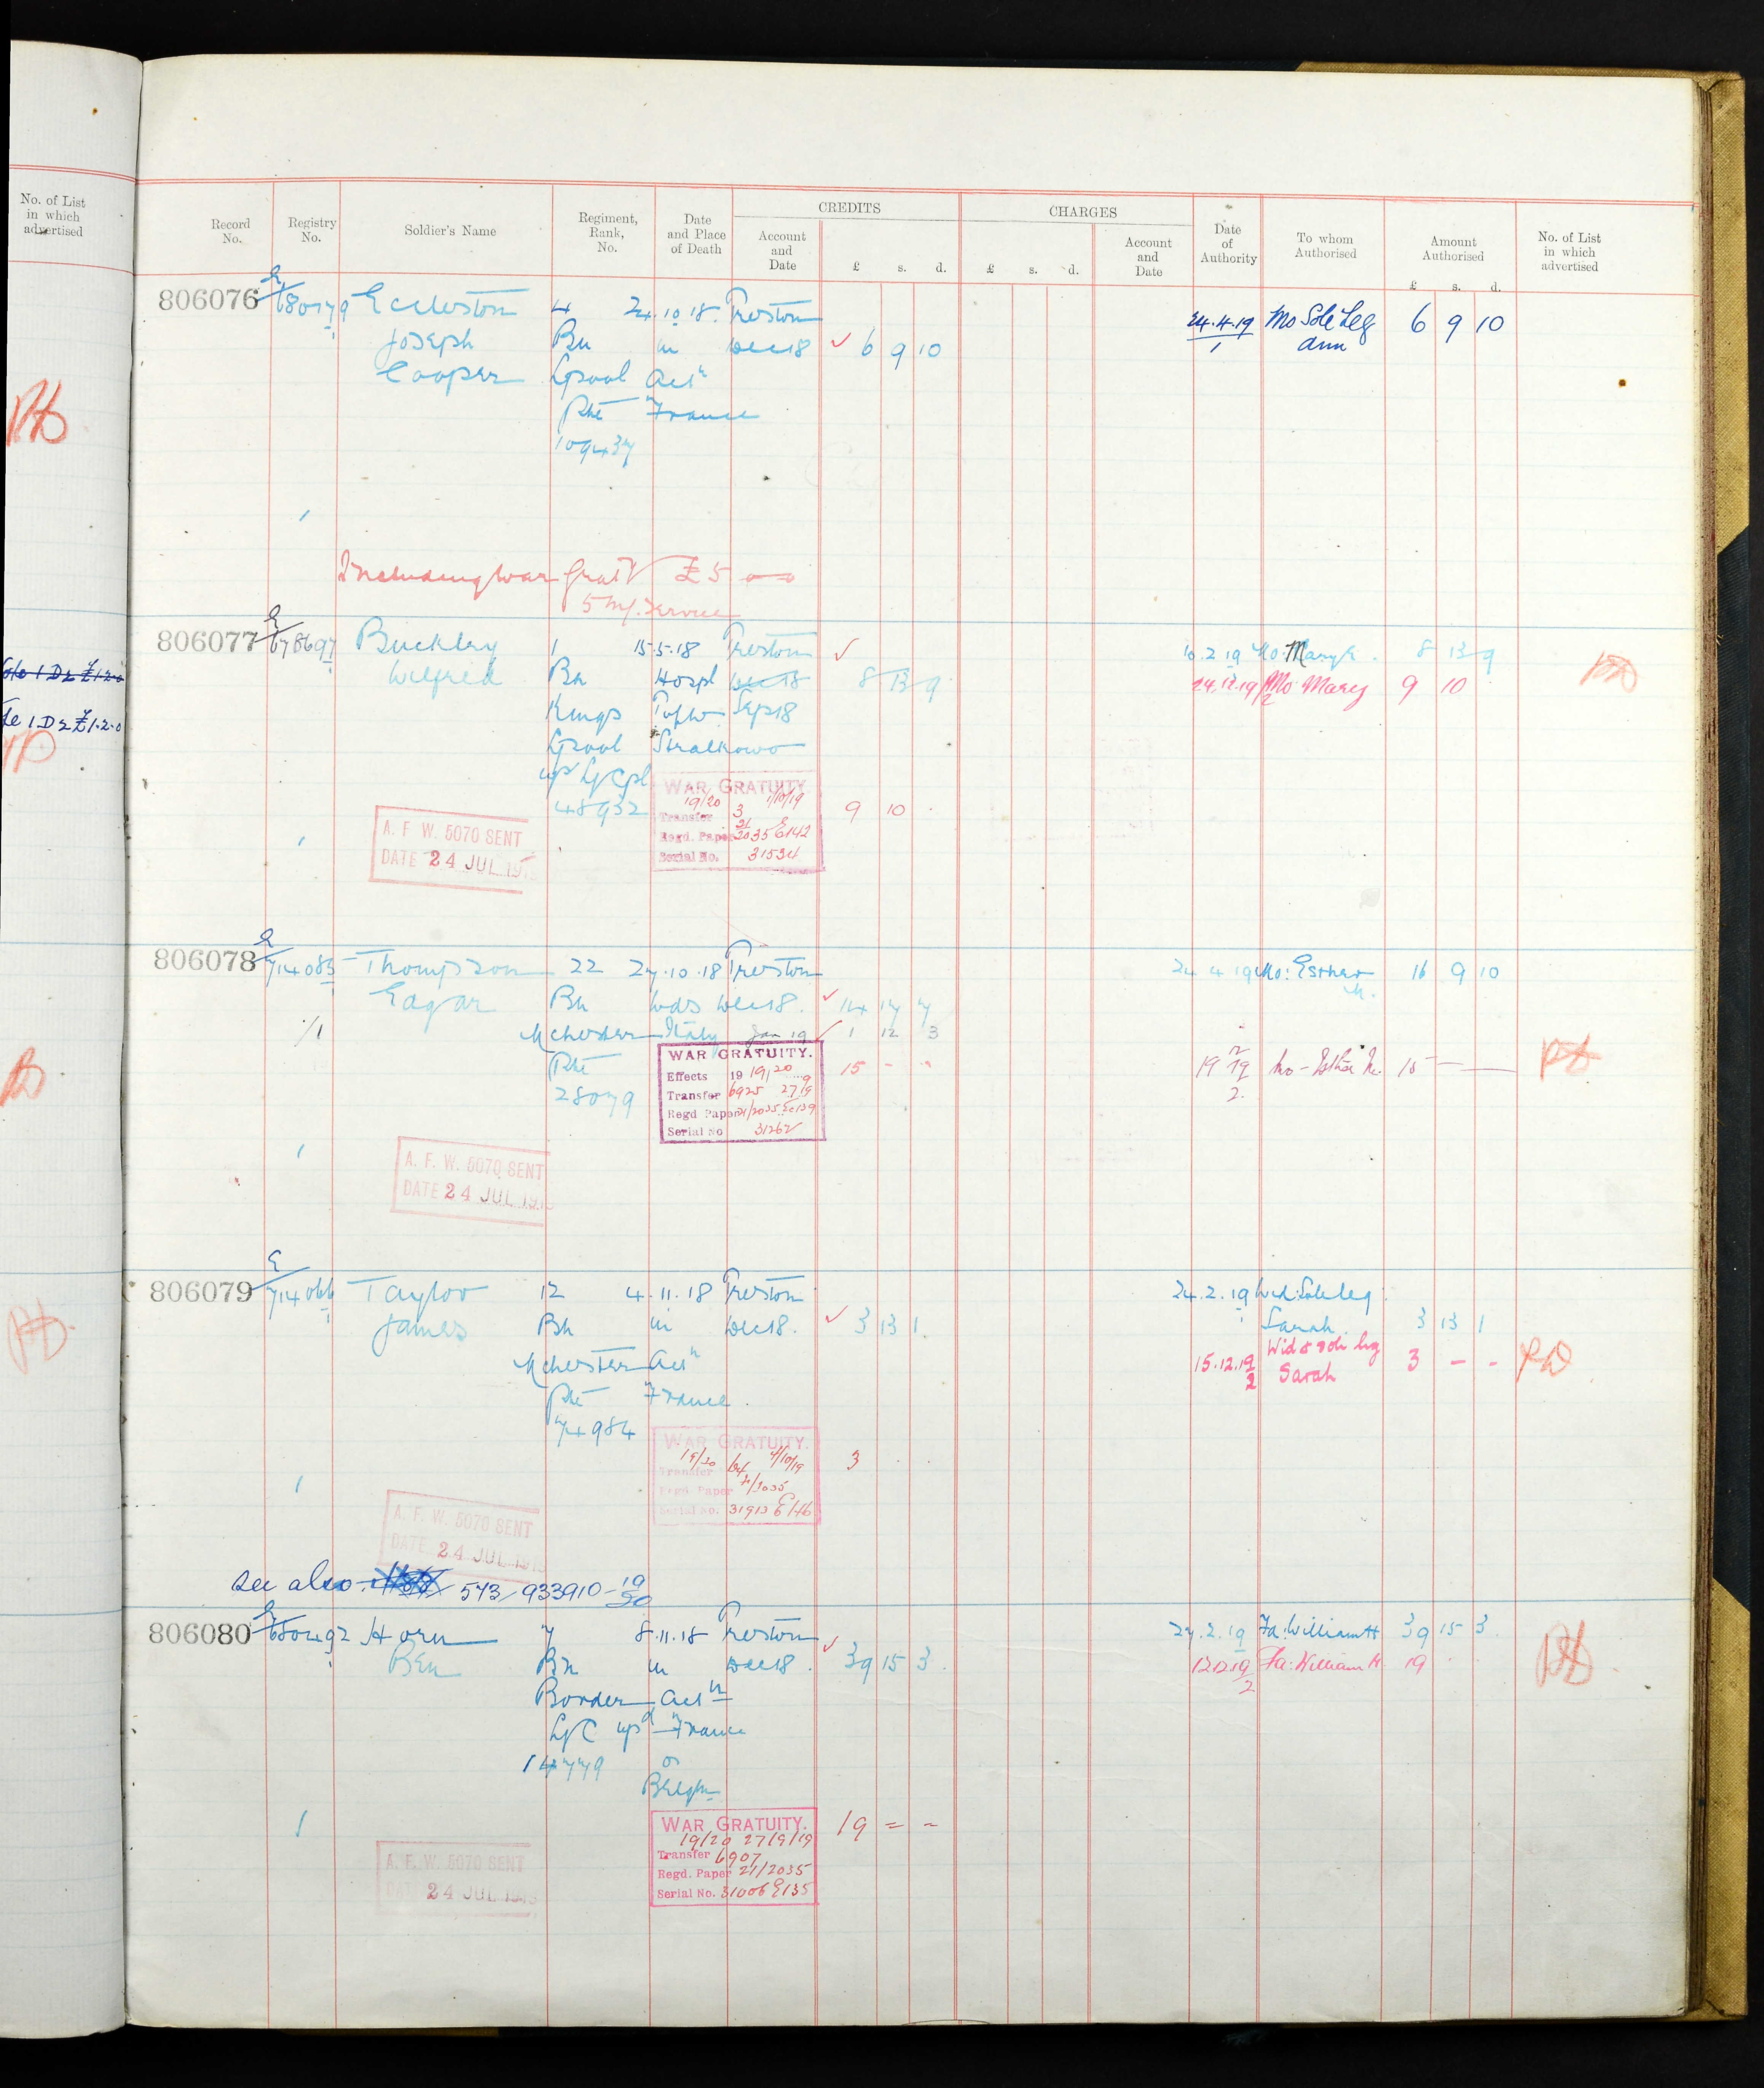 No. of List
in which
advertised
Record
No.
Registry
No.
Soldier's Name
Regiment,
Rank,
No.
Date
and Place
of Death
CREDITS
Account
and
Date
£ s. d.
CHARGES
£ s. d.
Account
and
Date
Date
of
Authority
To whom
Authorised
Amount
Authorised
£ s. d.
No. of List
in which
advertised
806076 E/680179 Eccleston 4 24.10.18 Preston 24.4.19 Mo Sole Leg 6 9 10
Joseph Bn in Dec 18 6 9 10 1 Ann
Cooper L'pool Actn
Pte France
109437
Including War Graty £5 - -
806077 E/678697 Buckley 1 15.5.18 Preston
Wilfred Bn Hospl Dec 18 8 13 9
Kings Sep 18
L'pool Stralkowo
L/Cpl
48932
8 13 9
24.12.19 Mo: Mary 9 10
2
WAR GRATUITY
19/20 3 1/10/19
Transfer
Regd. Paper 21/2035 E142
Serial No. 31534
9 10
A. F. W. 5070 SENT
DATE 24 JUL 19
806078 E/714083 Thompson 22 27.10.18 Preston 24 4 19 Mo: Esther 16 9 10
Edgar Bn Wds Dec 18. 14 17 7 M.
/1 Mchester Italy Jan 19 1 12 3
Pte
28079
WAR GRATUITY.
Effects 19 19/20
Transfer 6925 27/9
Regd Paper 21/2035 E139
Serial No 31262
15 - -
Mo - Esther M. 15 - -
A. F. W. 5070 SENT
DATE 24 JUL 19
806079 E/714066 Taylor 12 4.11.18 Preston 24.2.19 Wid: Sole leg
James Bn in Dec 18. 3 13 1 Sarah 3 13 1
Mchester Actn 15.12.19 Wid & sole leg 3 - -
Pte France. 2 Sarah
74984
WAR GRATUITY.
19/20 64 4/10/19
Transfer
Regd. Paper 21/2035
Serial No. 31913 E146
3
A. F. W. 5070 SENT
DATE 24 JUL 19
see also 573/933910-19/20
806080 Horn 7 8.11.18 Preston 27.2.19 Fa: William H 39 15 3
Ben Bn in Dec 18. 39 15 3 Fa: William H. 19
Border Actn 2
L/C upd France
14779 or
Belgm
WAR GRATUITY.
19/20 27/9/19
Transfer 6907
Regd. Paper 21/2035
Serial No. 31006 E135
19 = -
A. F. W. 5070 SENT
DATE 24 JUL 19